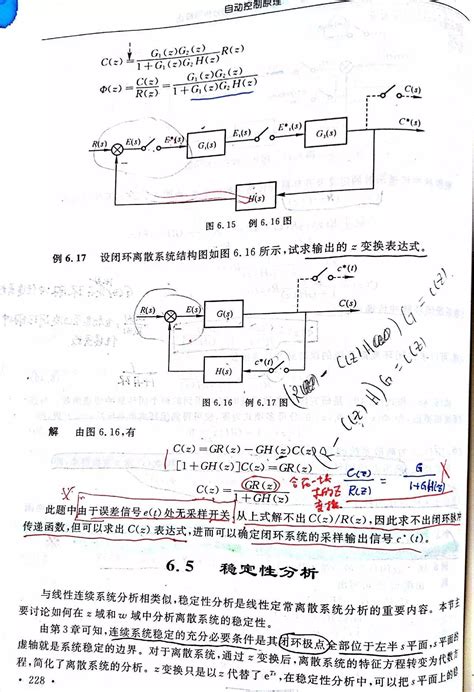 自动控制原理
C(z)=G₁(z)G₂(z)/1+G₁(z)G₂H(z) R(z)
Φ(z)=C(z)/R(z)=G₁(z)G₂(z)/1+G₁(z)G₂H(z)
C(s)
R(s) E(s) E*(s) G₁(s) E₁(s) E*₁(s) G₂(s) C*(s)
H(s)
图 6.15 例 6.16 图
例 6.17 设闭环离散系统结构图如图 6.16 所示,试求输出的 z 变换表达式。
c*(t)
R(s) E(s) G(s) C(s)
H(s) c*(t)
图 6.16 例 6.17 图
(R - C(z)H)G = C(z)
解 由图 6.16,有
C(z)=GR(z)-GH(z)C(z)
[1+GH(z)]C(z)=GR(z)
C(z)=GR(z)/1+GH(z)
C(z)/R(z) = G/1+GH(z) X
此题中由于误差信号 e(t) 处无采样开关,从上式解不出 C(z)/R(z),因此求不出闭环脉冲
传递函数,但可以求出 C(z) 表达式,进而可以确定闭环系统的采样输出信号 c*(t)。
6.5 稳定性分析
与线性连续系统分析相类似,稳定性分析是线性定常离散系统分析的重要内容。本节主
要讨论如何在 z 域和 w 域中分析离散系统的稳定性。
由第 3 章可知,连续系统稳定的充分必要条件是其闭环极点全部位于左半 s 平面,s 平面的
虚轴就是系统稳定的边界。对于离散系统,通过 z 变换后,离散系统的特征方程转变为代数方
程,简化了离散系统的分析。z 变换只是以 z 代替了 eᵀˢ,在稳定性分析中,可以把 s 平面上的稳
· 228 ·